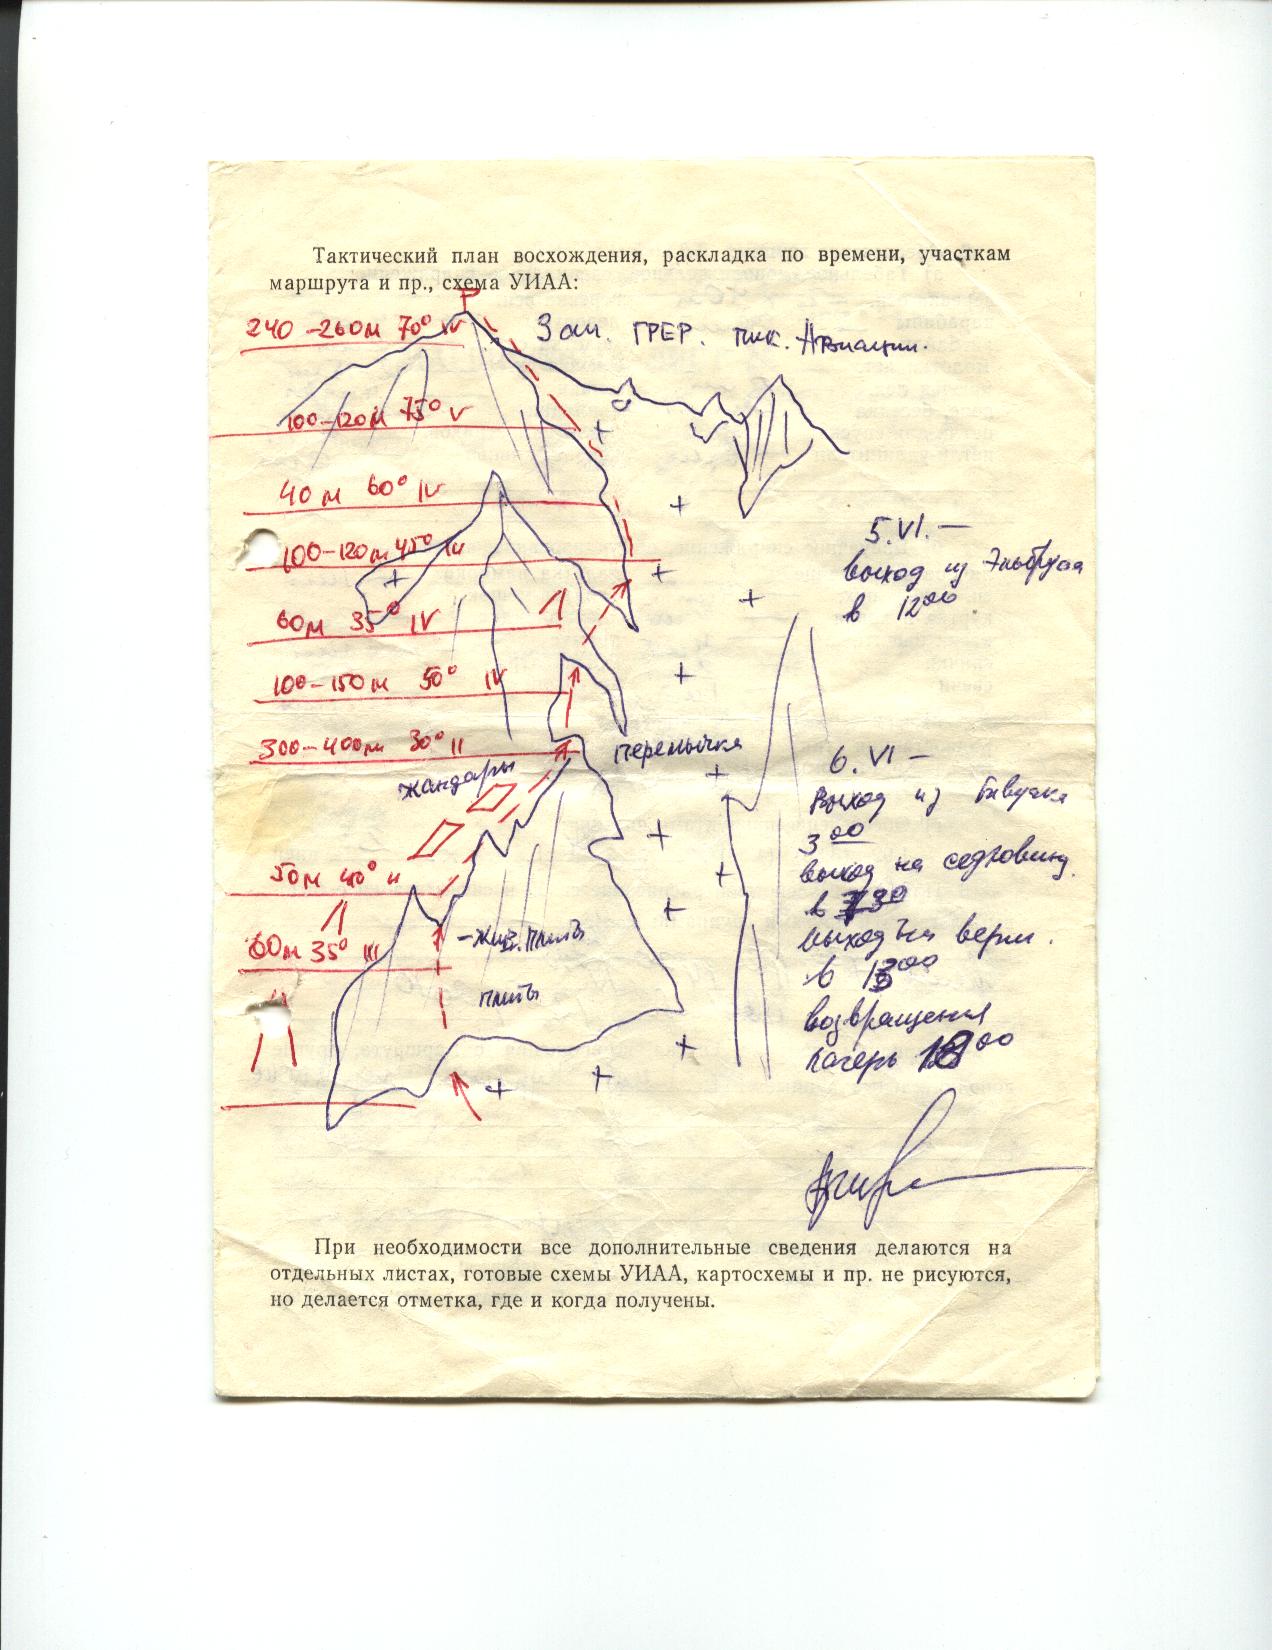 Тактический план восхождения, раскладка по времени, участкам
маршрута и пр., схема УИАА:
240-260м 70° IV
Зап. ГРЕР. пик. Авиации.
100-120м 75° V
40м 60° IV
100-120м 45° II
60м 35° IV
100-150м 50° IV
300-400м 30° II
жандары
перемычка
50м 40° II
60м 35° III
плиты
плиты
5.VI.—
выход из Эльбруса
в 12 00
6.VI —
Выход из бивуака
3 00
выход на седловину.
в 7 30
выход на верш.
в 13 00
возвращения
лагерь 18 00
При необходимости все дополнительные сведения делаются на
отдельных листах, готовые схемы УИАА, картосхемы и пр. не рисуются,
но делается отметка, где и когда получены.